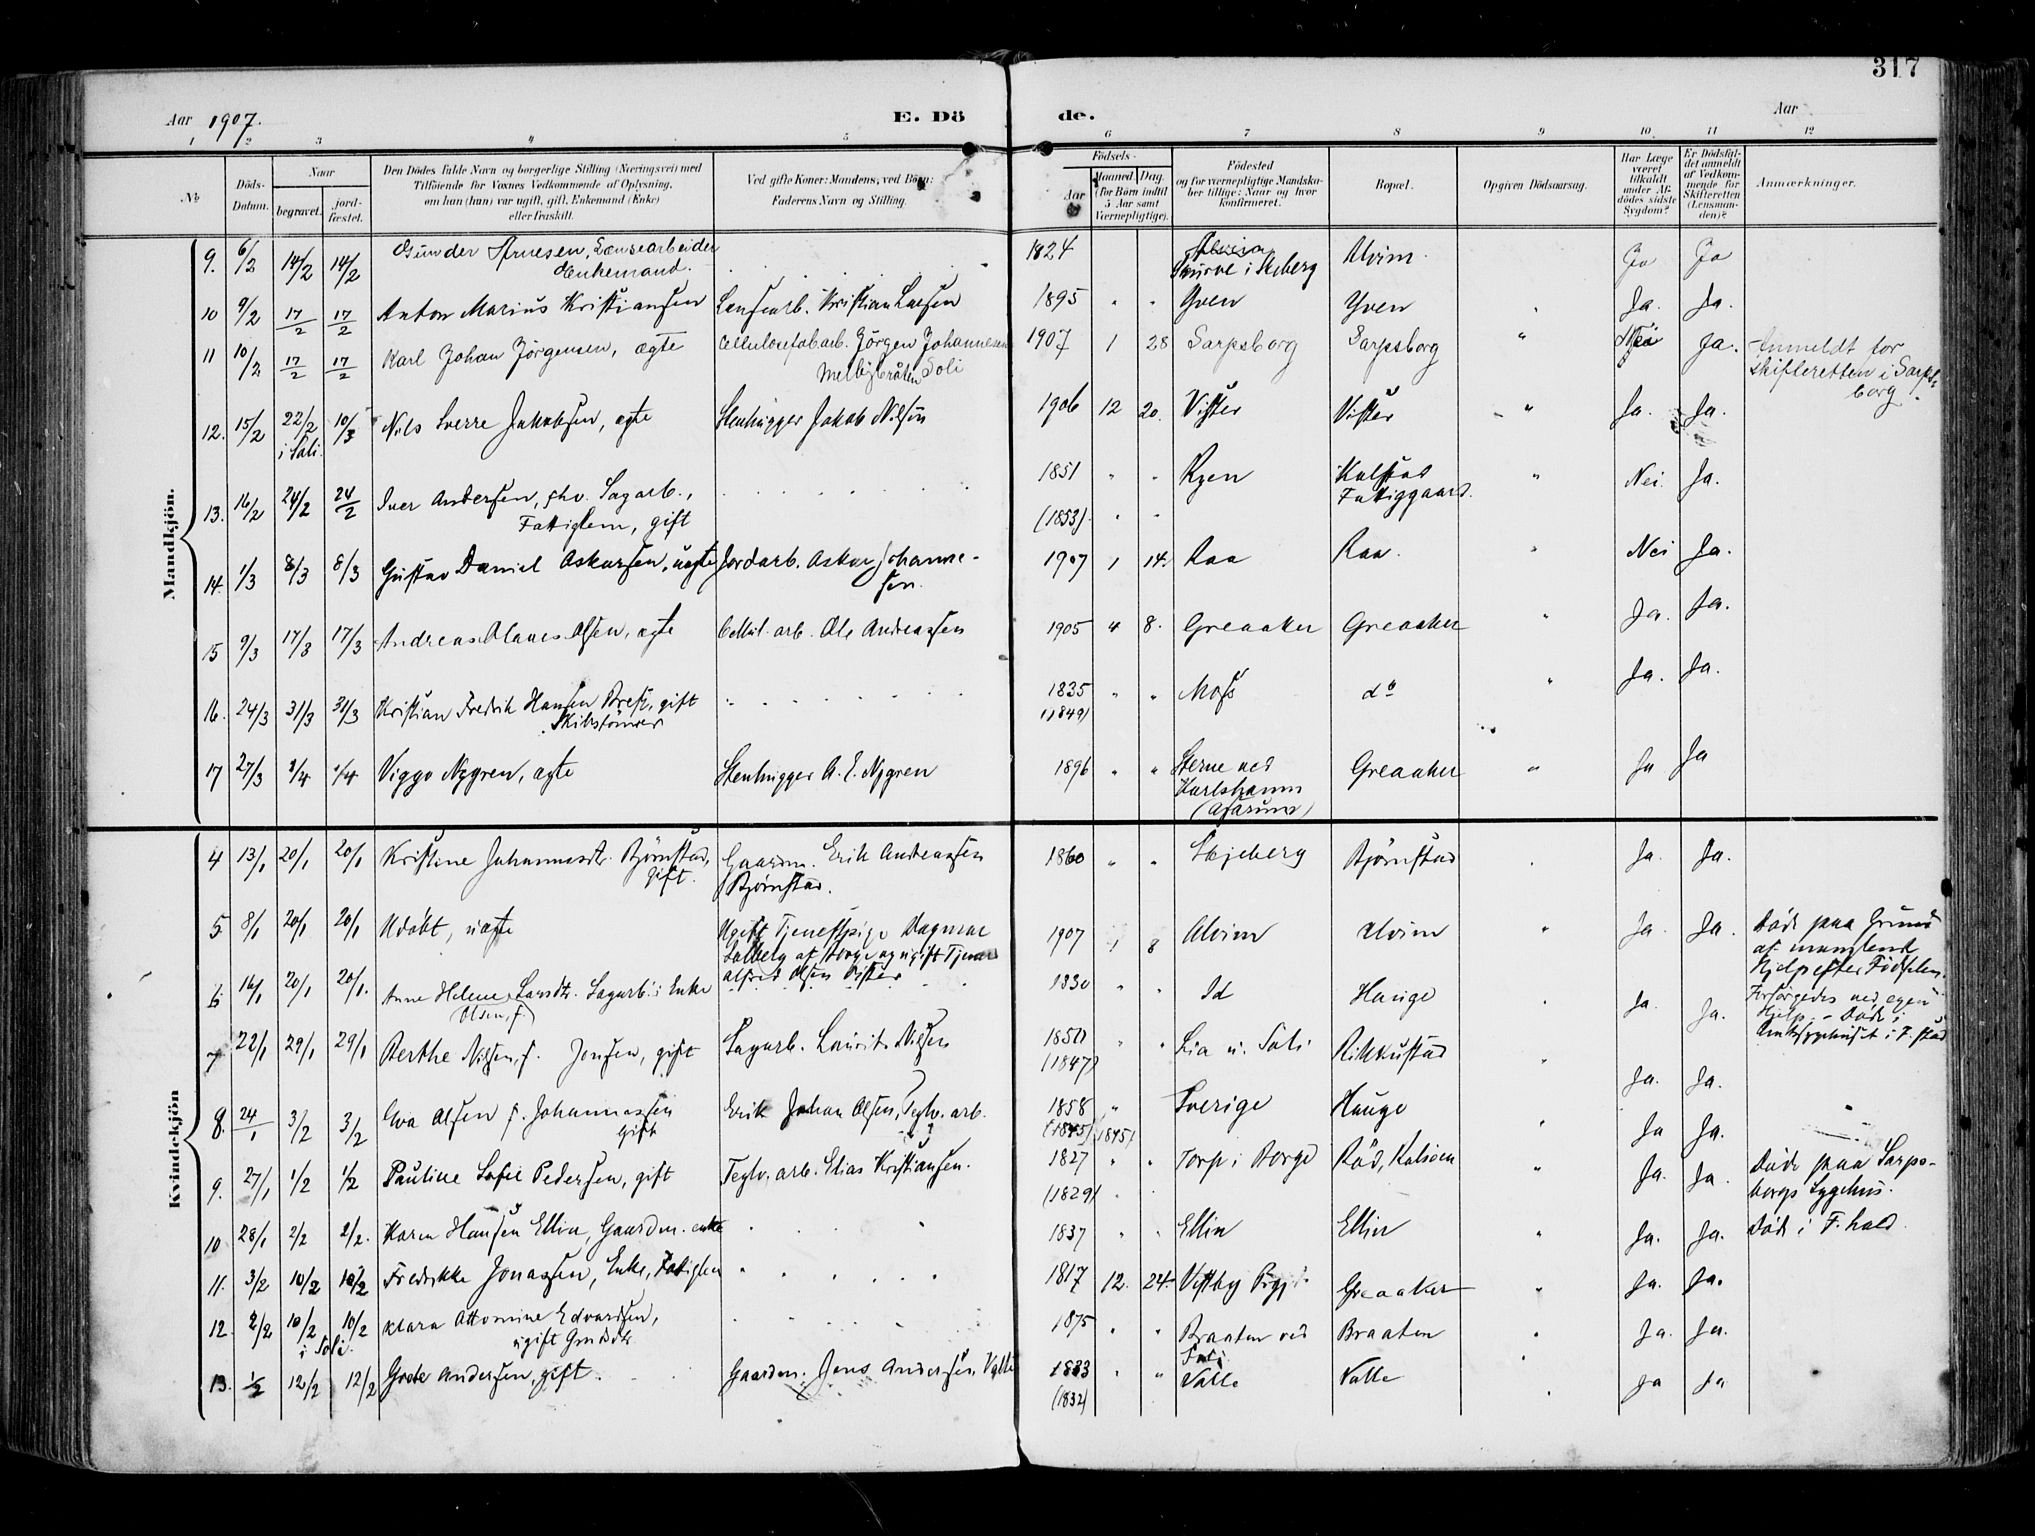 317
Aar 1907.
E. Dö de.
Aar
1 2 3 4 5 6 7 8 9 10 11 12
No
Döds-Datum.
Naar
begravet.
jord-fæstet.
Den Dödes fulde Navn og borgerlige Stilling (Næringsvei) med
Tilföiende for Voxnes Vedkommende af Oplysning,
om han (hun) var ugift, gift, Enkemand (Enke)
eller fraskilt.
Ved gifte Koner: Mandens, ved Börn:
Faderens Navn og Stilling.
Födsels-
Aar
Maaned. Dag.
(for Börn indtil
5 Aar samt
Værnepligtige).
Födested
og for værnepligtige Mandska-
ber tillige: Naar og hvor
konfirmeret.
Bopæl.
Opgiven Dödsaarsag.
Har Læge
været
tilkaldt
under Af-
dödes sidste
Sygdom?
Er Dödsfal-
det anmeldt
af Vedkom-
mende for
Skifteretten
(Lensman-
den)?
Anmærkninger.
Mandkjön.
9. 6/2 14/2 14/2 Gunder Arnesen, Lensearbeider 1824 Alvim Ja Ja
Enkemand. i Skeberg
10 9/2 17/2 17/2 Anton Marius Kristiansen Lensearb. Kristian Larsen 1895 " " Yven Yven Ja. Ja.
11 10/2 17/2 17/2 Karl Johan Jörgensen, ægte Cellulosefabarb. Jörgen Johannesen 1907 1 28 Sarpsborg Sarpsborg " Nei Ja. Anmeldt for
Melbybråten Soli skifteretten i Sarps-
borg.
12. 15/2 22/2 10/3 Nils Sverre Jakobsen, ægte Stenhugger Jakob Nilsen 1906 12 20. Vister Vister " Ja. Ja.
i Soli.
13. 16/2 24/2 24/2 Iver Andersen, fhv. Sagarb., 1851 " " Ryen Kalstad " Nei Ja.
Fattiglem, gift (1853). " " Fattiggaard.
14. 1/3 8/3 8/3 Gustav Daniel Oskarsen, uægte Jordarb. Oskar Johanne- 1907 1 14. Raa Raa. " Nei Ja.
sen.
15 9/3 17/3 17/3 Andreas Olaves Olsen, ægte Cellul. arb. Ole Andreassen 1905 4 8. Greaaker Greaaker " Ja. Ja.
16. 24/3 31/3 31/3 Kristian Fredrik Hansen Brest, gift " 1835 " " Moss do " Ja. Ja.
Skibstömrer (1849)
17 27/3 1/4 1/4 Viggo Nygren, ægte Stenhugger A. E. Nygren 1896 " " Sterne ved Greaaker " Ja Ja
Karlshamn
(Asarum)
Kvindekjön
4 13/1 20/1 20/1 Kristine Johannesdtr. Björnstad, Gaardm. Erik Andreassen 1860 " " Skjeberg Björnstad Ja. Ja.
gift. Björnstad.
5. 8/1 20/1 20/1 Udöbt, uægte Ugift Tjenestpige Dagmar 1907 1 8 Alvim Alvim " Ja. Ja. Död paa Grund
Solberg af Borge og ugift Tjener af manglende
Alfred Olsen Vister Hjelp efter Födselen.
6 16/1 20/1 20/1. Anne Helene Larsdtr. Sagarb.'s Enke 1830 " " Id Hauge Ja. Ja. Forsörgedes ved egen
Olsen, f. Hjelp. - Död i
7 22/1 29/1 29/1 Berthe Nilsen, f. Jonsen, gift Sagarb. Laurits Nilsen 1850 " " Lia u. Soli " Ja. Ja. Amtssygehuset i F.stad
(1847)
8. 24/1 3/2 3/2 Eva Olsen f. Johannessen Erik Johan Olsen, Teglv. arb. 1858 " Sverige Hauge " Ja Ja.
gift (1845) 1845)
9. 27/1 1/2 1/2 Pauline Sofie Pedersen, gift Teglv. arb. Elias Kristiansen. 1827 " " Torp i Borge Röd, Kalsöen " Ja. Ja. Död paa Sarps-
(1829) " borgs Sygehus.
10 28/1 2/2 2/2. Karen Hansen Ellin, Gaardm. enke 1837 " " Ellin Ellin " Ja. Ja. Död i F. hald.
11. 3/2 10/2 10/2 Fredrikke Jonassen, Enke, Fattiglem 1817 12. 24. Vestby Greaaker " Ja. Ja.
12. 2/2 10/2 10/2 Klara Ottomine Edvardsen, 1875 " " Braaten ved Braaten " Ja. Ja.
i Soli. ugift Grdsdtr. Soli
13. 1/2 12/2 12/2 Grete Andersen, gift. Gaardm. Jens Andersen, Valle 1833 " " Valle Valle " Ja Ja
(1832)